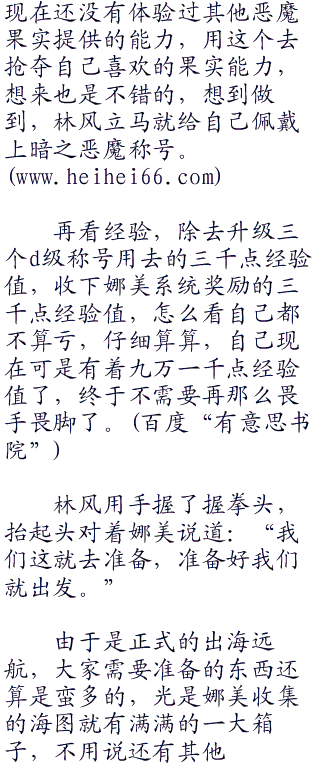 现在还没有体验过其他恶魔
果实提供的能力，用这个去
抢夺自己喜欢的果实能力，
想来也是不错的，想到做
到，林风立马就给自己佩戴
上暗之恶魔称号。
(www.heihei66.com)
再看经验，除去升级三
个d级称号用去的三千点经验
值，收下娜美系统奖励的三
千点经验值，怎么看自己都
不算亏，仔细算算，自己现
在可是有着九万一千点经验
值了，终于不需要再那么畏
手畏脚了。(百度“有意思书
院”)
林风用手握了握拳头，
抬起头对着娜美说道：“我
们这就去准备，准备好我们
就出发。”
由于是正式的出海远
航，大家需要准备的东西还
算是蛮多的，光是娜美收集
的海图就有满满的一大箱
子，不用说还有其他